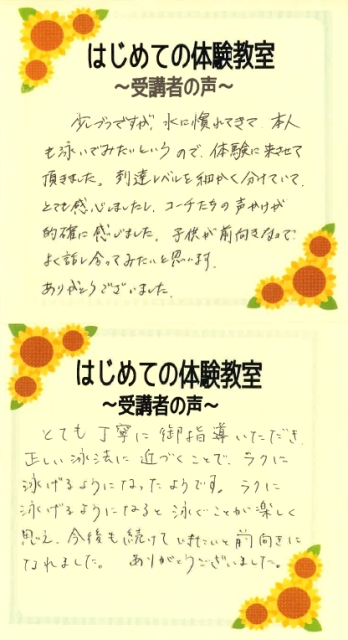 はじめての体験教室
～受講者の声～
少しづつですが、水に慣れてきて、本人
も泳いでみたいというので、体験に来させて
頂きました。到達レベルを細かく分けていて、
とても感心しましたし、コーチたちの声かけが
的確に感じました。子供が前向きなので、
よく話し合ってみたいと思います。
ありがとうございました。
はじめての体験教室
～受講者の声～
とても丁寧に御指導いただき、
正しい泳法に近づくことで、ラクに
泳げるようになったようです。ラクに
泳げるようになると泳ぐことが楽しく
思え、今後も続けていきたいと前向きに
なれました。ありがとうございました。